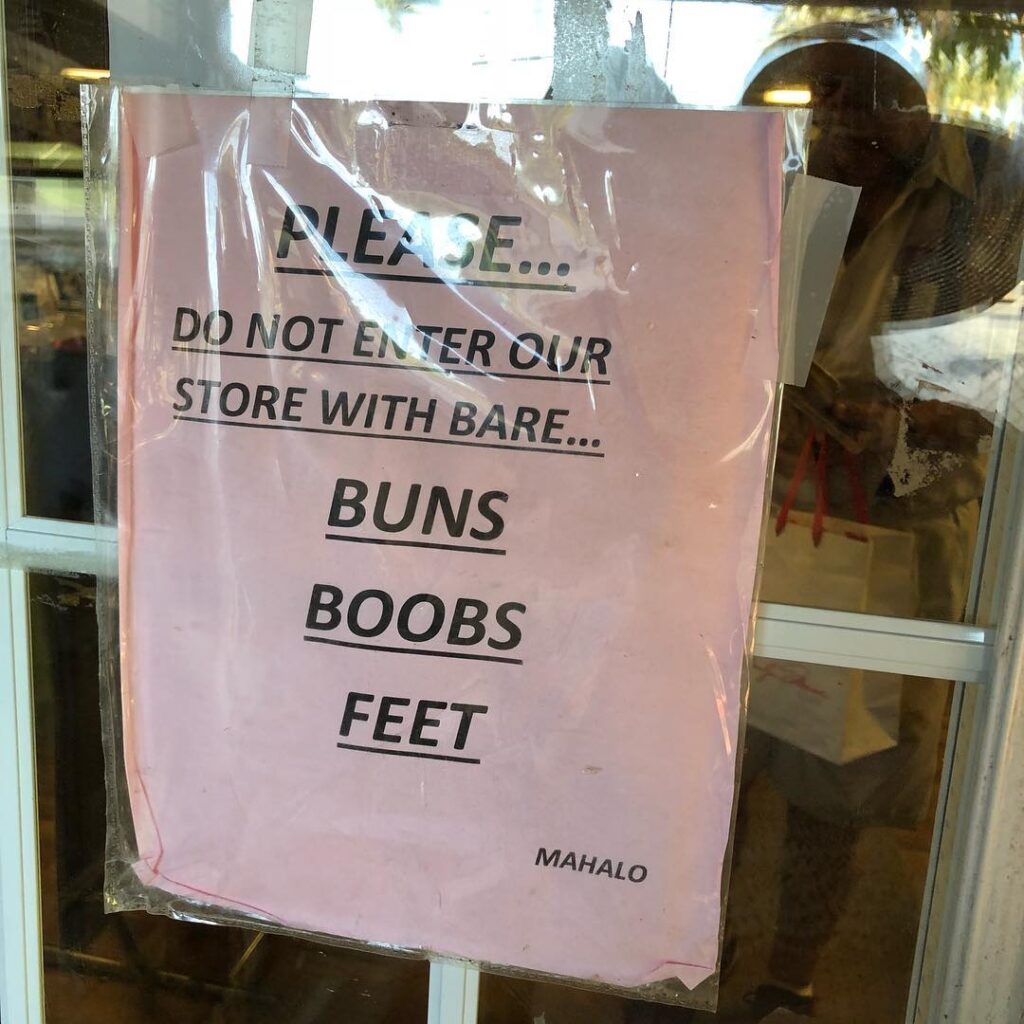 PLEASE...
DO NOT ENTER OUR
STORE WITH BARE...
BUNS
BOOBS
FEET
MAHALO